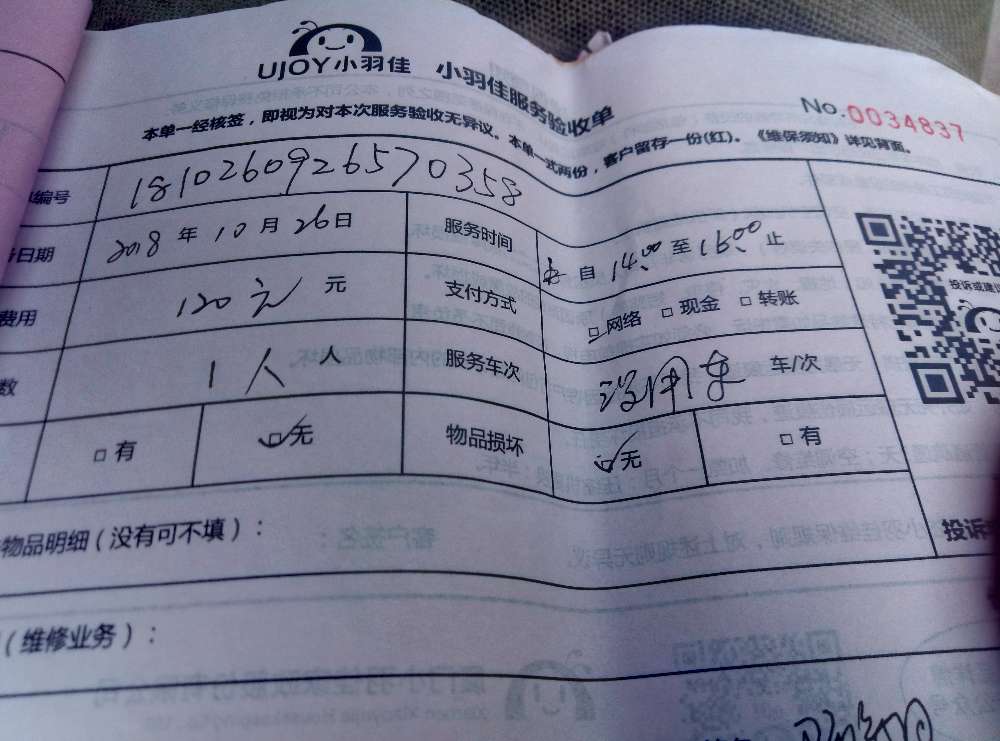 UJOY小羽佳 小羽佳服务验收单
No. 0034837
本单一经核签，即视为对本次服务验收无异议。本单一式两份，客户留存一份(红)。《维保须知》详见背面。
编号 1810260926570358
日期 2018 年 10 月 26 日 服务时间 自 14:00 至 16:00 止
费用 120元 元 支付方式 □网络 □现金 □转账
数 1人 人 服务车次 没用车 车/次
□有 □无 物品损坏 □无 □有
投诉或建议
物品明细（没有可不填）：
投诉
（维修业务）：